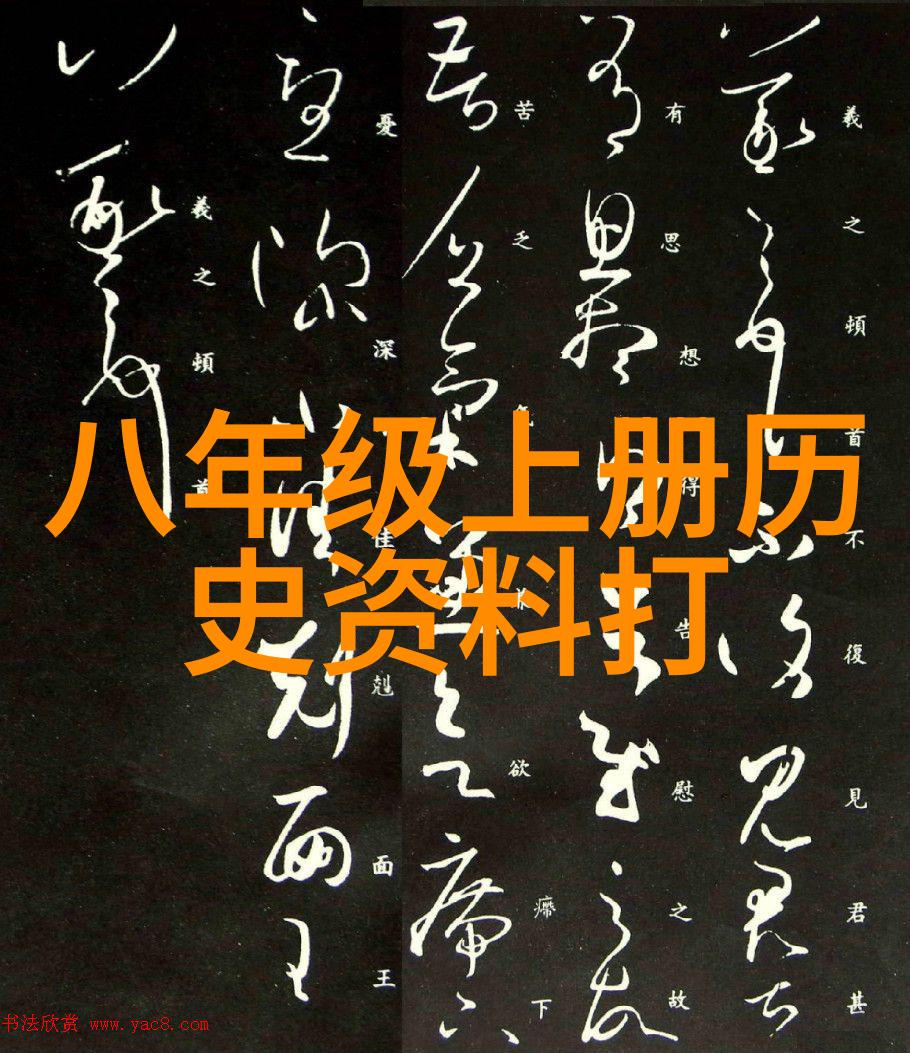 八年级上册历
史资料打
羲之頓首不復見君甚
有思想得告慰之故
苦乏
欲㿃下
憂深
佳剋面王
羲之頓首
书法欣赏 www.yac8.com